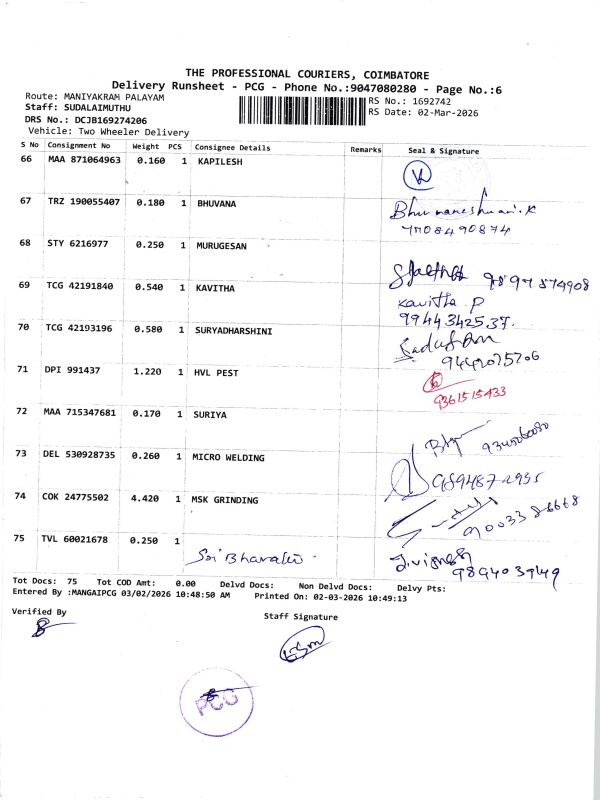 THE PROFESSIONAL COURIERS, COIMBATORE
Delivery Runsheet - PCG - Phone No.:9047080280 - Page No.:6
Route: MANIYAKRAM PALAYAM
RS No.: 1692742
Staff: SUDALAIMUTHU
RS Date: 02-Mar-2026
DRS No.: DCJB169274206
Vehicle: Two Wheeler Delivery
S No Consignment No Weight PCS Consignee Details Remarks Seal & Signature
66 MAA 871064963 0.160 1 KAPILESH
67 TRZ 190055407 0.180 1 BHUVANA
68 STY 6216977 0.250 1 MURUGESAN
69 TCG 42191840 0.540 1 KAVITHA
Kavitha P
70 TCG 42193196 0.580 1 SURYADHARSHINI
71 DPI 991437 1.220 1 HVL PEST
9361515433
72 MAA 715347681 0.170 1 SURIYA
73 DEL 530928735 0.260 1 MICRO WELDING
74 COK 24775502 4.420 1 MSK GRINDING
75 TVL 60021678 0.250 1
Tot Docs: 75 Tot COD Amt: 0.00 Delvd Docs: Non Delvd Docs: Delvy Pts:
Entered By :MANGAIPCG 03/02/2026 10:48:50 AM Printed On: 02-03-2026 10:49:13
Verified By
Staff Signature
PCG